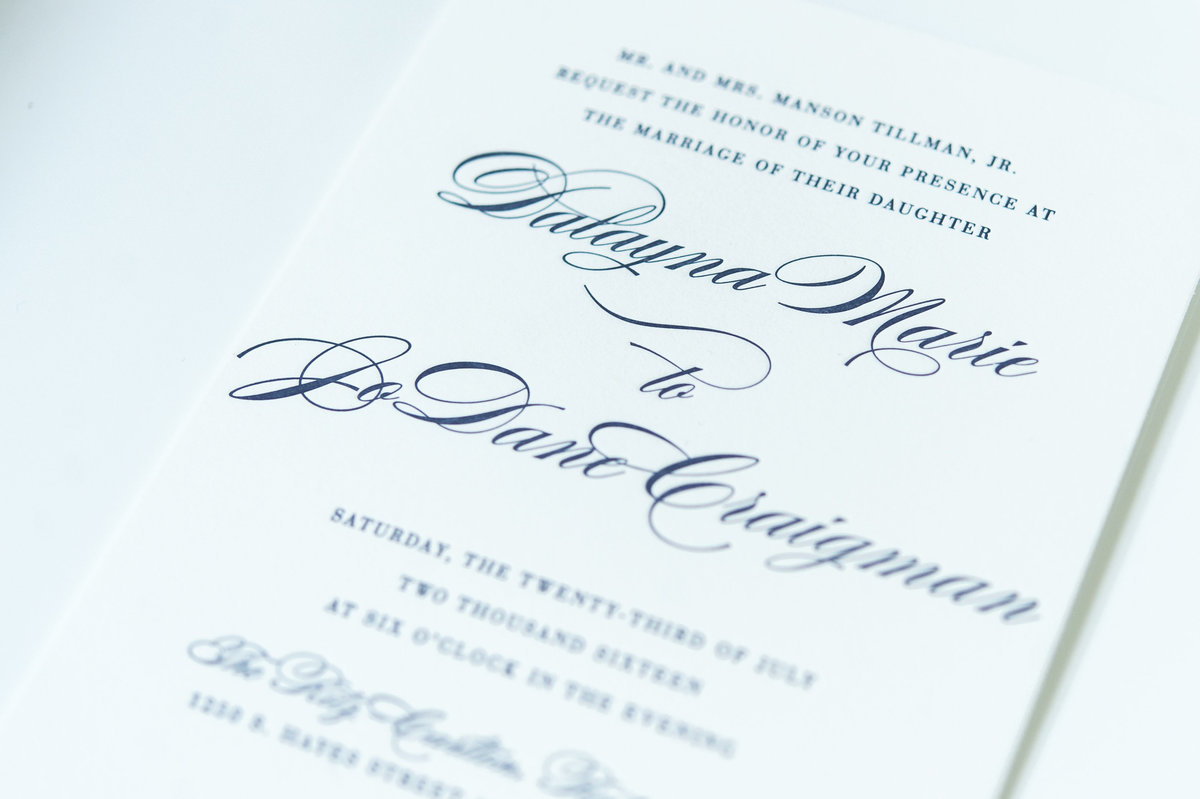 MR. AND MRS. MANSON TILLMAN, JR.
REQUEST THE HONOR OF YOUR PRESENCE AT
THE MARRIAGE OF THEIR DAUGHTER
Dalayna Marie
to
Jo Dane Craigman
SATURDAY, THE TWENTY-THIRD OF JULY
TWO THOUSAND SIXTEEN
AT SIX O'CLOCK IN THE EVENING
The Ritz Carlton,
S. HAYES STREET